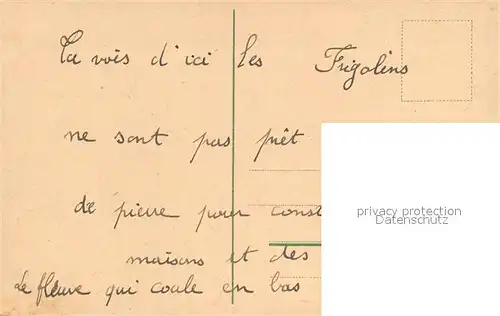 Ta vois d'ici les Frigolins
ne sont pas prêt
de pierre pour const
maisons et des
Le fleuve qui coule en bas
privacy protection
Datenschutz